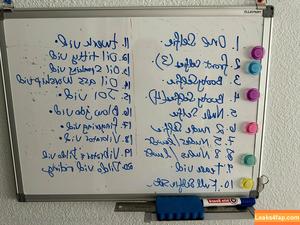 1. One Selfie
2. Front Selfies (3)
3. Booty Selfie
4. Booty Selfies (4)
5. Nude Selfie
6. 2 nude selfies
7. 5 Nudes
8. 8 Nudes
9. Tease vid.
10. Full Selfie Set
11. twerk vid.
12. Oil titty vid
13. Oil Spanking vid
14. Oil ass Worship vid
15. JOI vid.
16. Blow job vid.
17. Fingering vid
18. Vibrator vid.
19. Vibrator + Dildo vid
20. Dildo vid riding.
Leaks4fap.com